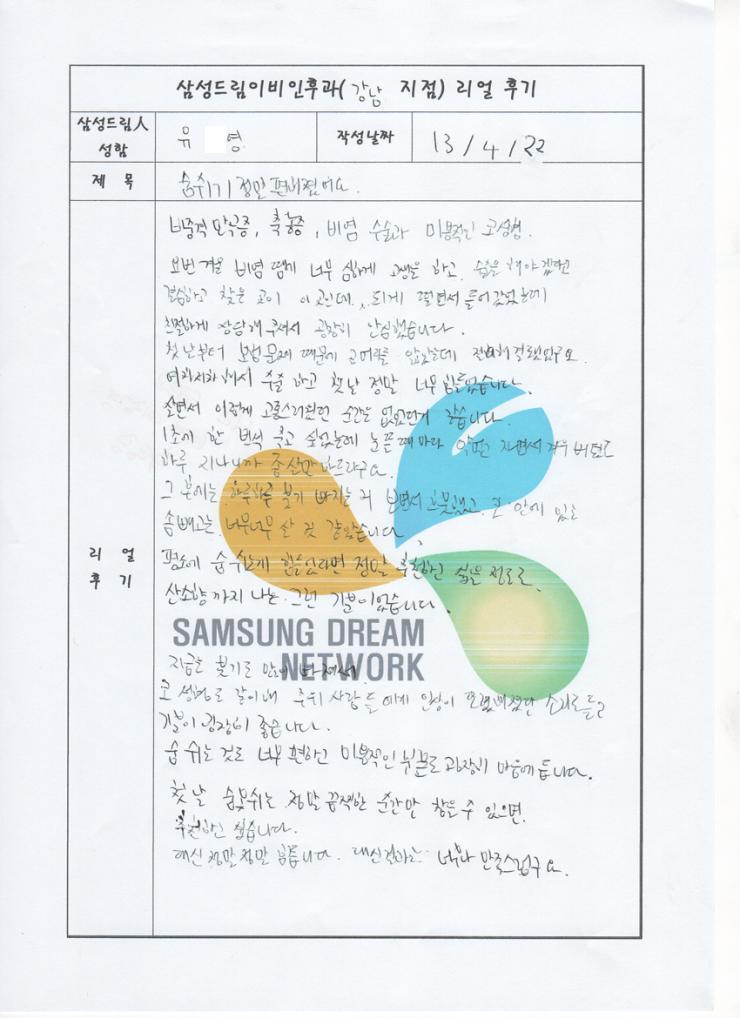 삼성드림이비인후과(강남 지점) 리얼 후기
삼성드림人 성함
유 영
작성날짜
13/4/22
제 목
숨쉬기 정말 편해졌어요.
리 얼 후 기
비중격 만곡증, 축농증, 비염 수술과 미용적인 코성형.
요번 겨울 비염 땜에 너무 심하게 고생을 하고, 수술을 해야겠다고
결심하고 찾은 곳이 이곳인데, 되게 떨면서 들어갔었는데
친절하게 상담해주셔서 굉장히 안심했습니다.
첫날부터 보험문제 때문에 골머리를 앓았는데 잘 해결됐었구요
수술 하고 첫날 정말 너무 힘들었습니다.
살면서 이렇게 고통스러웠던 순간은 없었던거 같습니다.
1초에 한 번씩 죽고 싶었는데 눈 뜰 때마다 자면서 겨우 버텼고
하루 지나니까 좀 살만 하드라구요.
그 후에는 하루하루 붓기 빠지는 거 보면서 흐뭇했고, 코 안에 있는
솜 빼고는 너무너무 산 것 같았습니다.
평소에 숨쉬는게 힘들었다면 정말 추천하고 싶을 정도로
산소향까지 나는 그런 기분이었습니다.
지금은 붓기도 많이 빠져서
코 성형도 같이해 주위 사람들에게 인상이 또렷해졌단 소리도 듣고
기분이 굉장히 좋습니다.
숨 쉬는 것도 너무 편하고 미용적인 부분도 굉장히 마음에 듭니다.
첫날 숨못쉬는 정말 끔찍한 순간만 참을 수 있으면,
추천하고 싶습니다.
대신 정말 정말 힘듭니다. 대신 결과는 너무나 만족스럽구요.
SAMSUNG DREAM
NETWORK